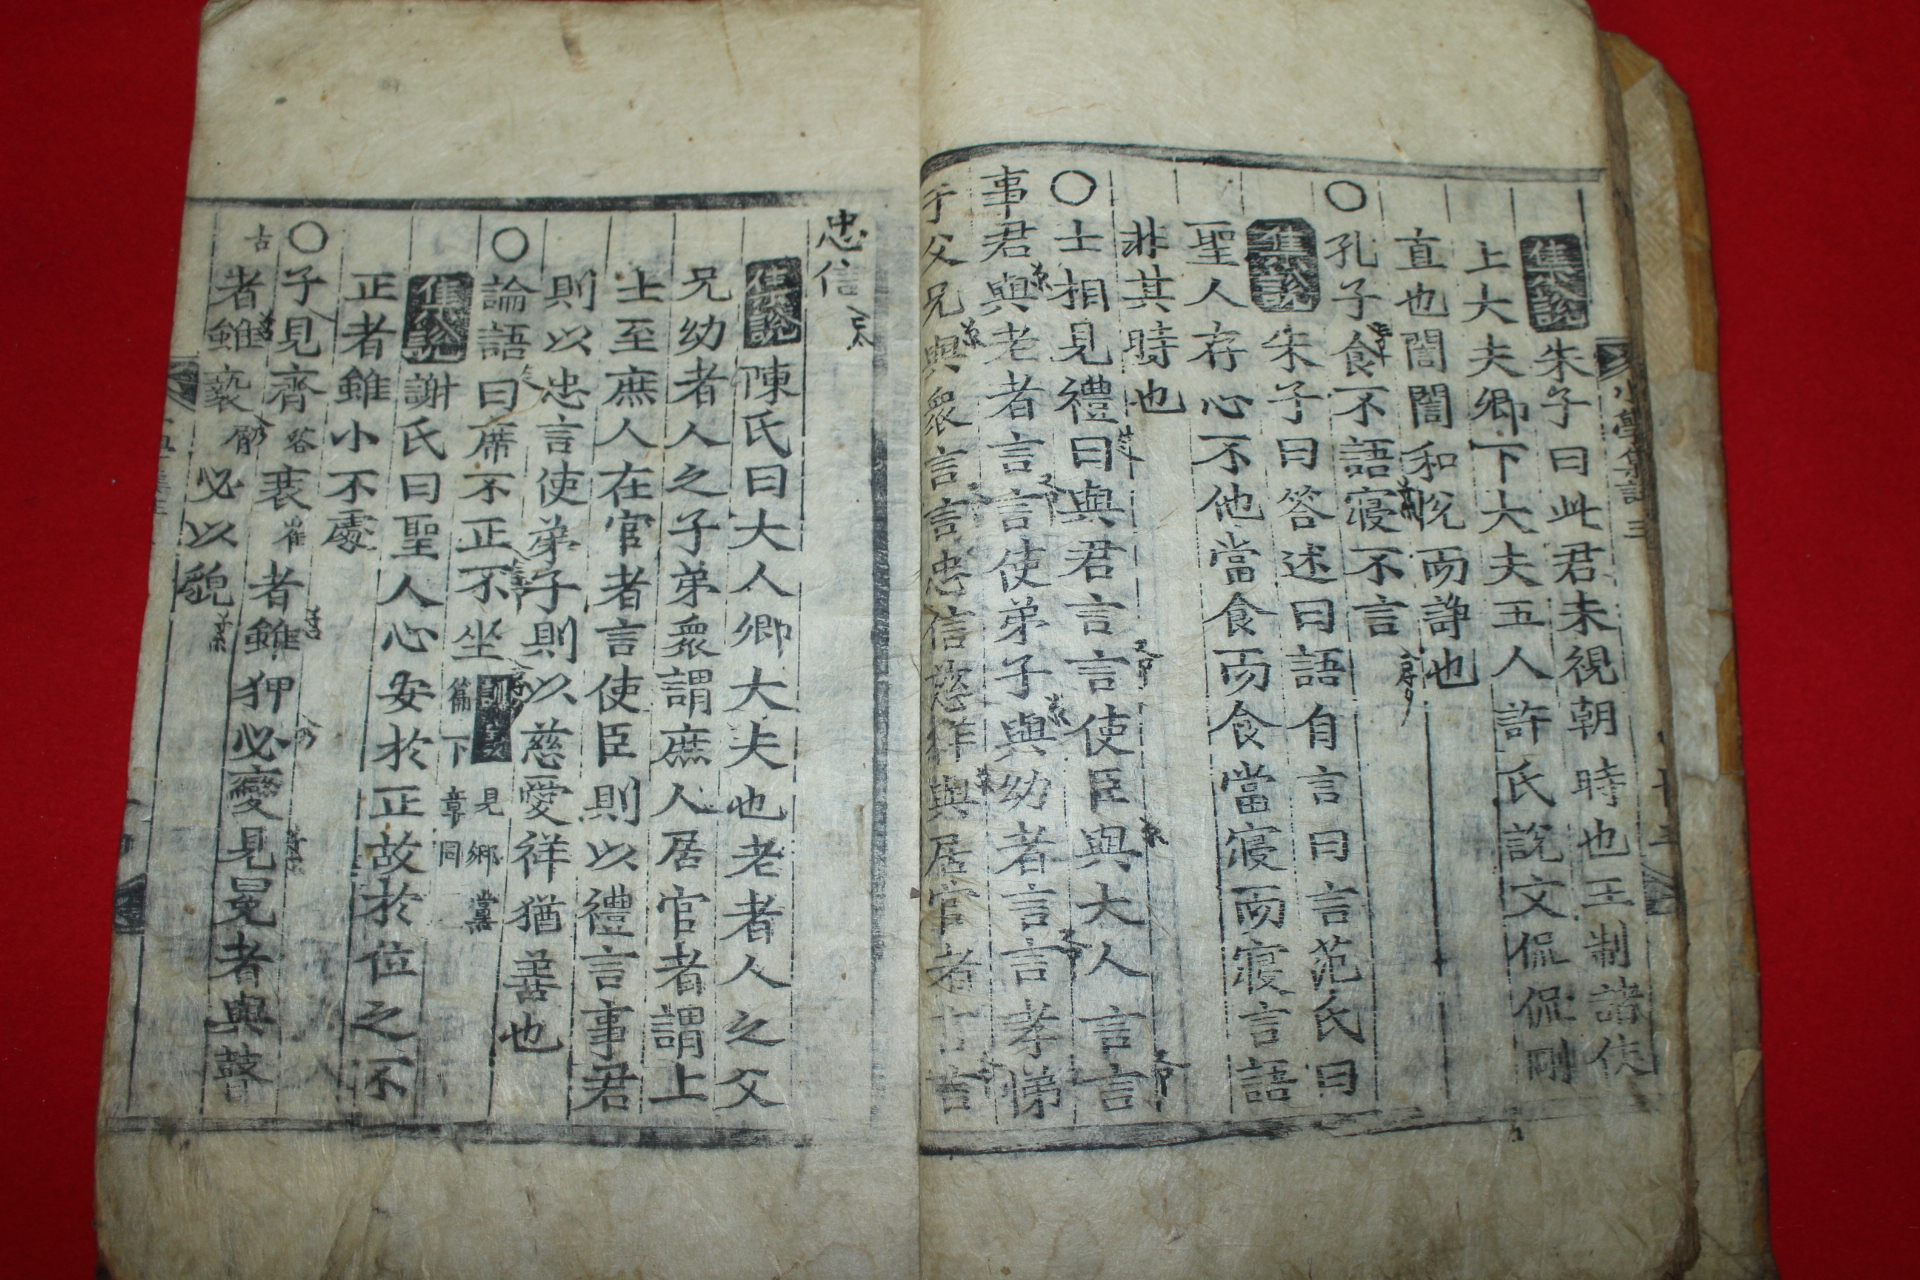 小學集說 三
集說 朱子曰此君未視朝時也王制諸侯
上大夫卿下大夫五人許氏說文侃侃剛
直也誾誾和悅而諍也
○孔子食不語寢不言
集說 朱子曰答述曰語自言曰言范氏曰
聖人存心不他當食而食當寢而寢言語
非其時也
○士相見禮曰與君言言使臣與大人言言
事君與老者言言使弟子與幼者言言孝悌
于父兄與衆言言忠信慈祥與居官者言言
忠信
集說 陳氏曰大人卿大夫也老者人之父
兄幼者人之子弟衆謂庶人居官者謂上
士至庶人在官者言使臣則以禮言事君
則以忠言使弟子則以慈愛祥猶善也
○論語曰席不正不坐 訓義 見鄕黨
篇下章同
集說 謝氏曰聖人心安於正故於位之不
正者雖小不處
○子見齊衰者雖狎必變見冕者與瞽
者雖褻必以貌